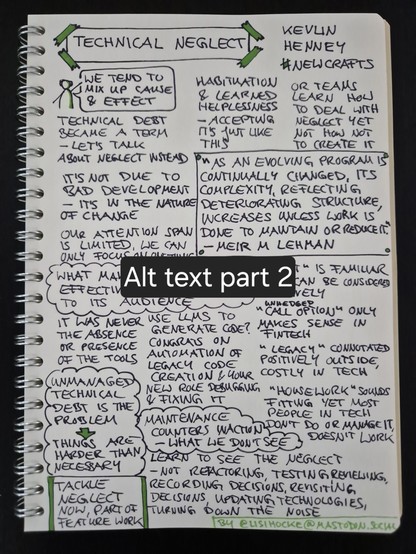 TECHNICAL NEGLECT
KEVLIN
HENNEY
#NEWCRAFTS
WE TEND TO
MIX UP CAUSE
& EFFECT
TECHNICAL DEBT
BECAME A TERM
- LET'S TALK
ABOUT NEGLECT INSTEAD
IT'S NOT DUE TO
BAD DEVELOPMENT
- IT'S IN THE NATURE
OF CHANGE
OUR ATTENTION SPAN
IS LIMITED, WE CAN
ONLY FOCUS ON
HABITUATION
& LEARNED
HELPLESSNESS
- ACCEPTING
IT'S JUST LIKE
THIS
OR TEAMS
LEARN HOW
TO DEAL WITH
NEGLECT YET
NOT HOW NOT
TO CREATE IT
"AS AN EVOLVING PROGRAM IS
CONTINUALLY CHANGED, ITS
COMPLEXITY, REFLECTING
DETERIORATING STRUCTURE,
INCREASES UNLESS WORK IS
DONE TO MAINTAIN OR REDUCE IT."
- MEIR M LEHMAN
Alt text part 2
WHAT
TO ITS AUDIENCE
IT WAS NEVER
THE ABSENCE
OR PRESENCE
OF THE TOOLS
UNMANAGED
TECHNICAL
DEBT IS THE
PROBLEM
THINGS ARE
HARDER THAN
NECESSARY
TACKLE
NEGLECT
NOW, PART OF
FEATURE WORK
USE LLMS TO
GENERATE CODE?
CONGRATS ON
AUTOMATION OF
LEGACY CODE
CREATION & YOUR
NEW ROLE DEBUGGING
& FIXING IT
IS FAMILIAR
CAN BE CONSIDERED
UNHEDGED
"CALL OPTION" ONLY
MAKES SENSE IN
FINTECH
"LEGACY" CONNOTATED
POSITIVELY OUTSIDE,
COSTLY IN TECH
"HOUSEWORK" SOUNDS
FITTING YET MOST
PEOPLE IN TECH
DON'T DO OR MANAGE IT,
DOESN'T WORK
MAINTENANCE
COUNTERS INACTION
- WHAT WE DON'T SEE
LEARN TO SEE THE NEGLECT
- NOT REFACTORING, TESTING, REVIEWING,
RECORDING DECISIONS, REVISITING
DECISIONS, UPDATING TECHNOLOGIES,
TURNING DOWN THE NOISE
BY @LISIHOCKE@MASTODON.SOCIAL